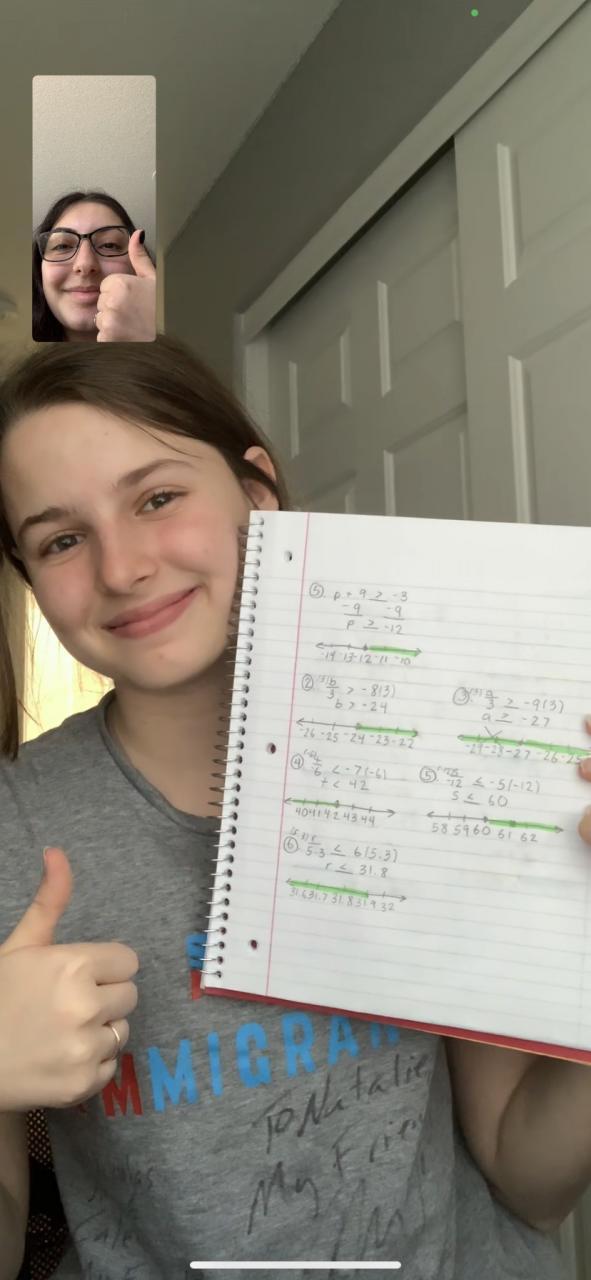 ⑤. p + 9 ≥ -3
-9 -9
p ≥ -12
-14 -13 -12 -11 -10
② (3) b/3 > -8(3)
b > -24
-26 -25 -24 -23 -22
③ (3) a/3 ≥ -9(3)
a ≥ -27
-29 -28 -27 -26 -25
④ (-6) t/-6 < -7(-6)
t < 42
40 41 42 43 44
⑤ (-12) s/-12 ≤ -5(-12)
s ≤ 60
58 59 60 61 62
⑥ (5.3) r/5.3 ≤ 6(5.3)
r ≤ 31.8
31.6 31.7 31.8 31.9 32
MMIGRA
To Natalie
My Frie